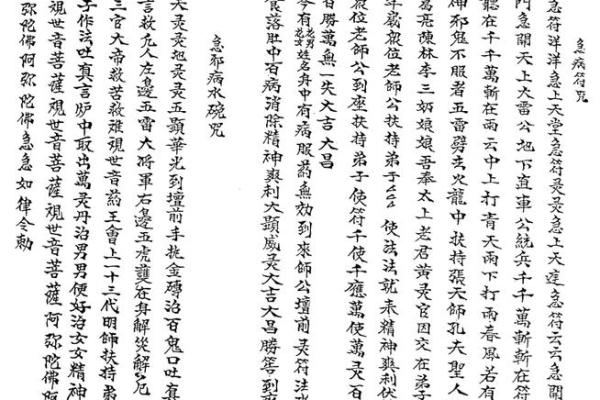 急病符咒
急符洋洋急上天堂急符灵灵急上天達急符云云急開
門急開天上大雷公旭下直車公統兵千千萬斬斬在符
聽在千千萬斬在雨云中上打青天雨下打雨春風若有
神邪鬼不服者五雷劈去火龍中扶持張天師孔夫聖人
葛亮陳林李三奶娘娘吾奉太上老君黄灵官因交在弟子
年歲設位老師公扶持弟子 使法法就来精神爽利伏
設位老師公到座扶持弟子 使符千使千應萬使萬灵百
百勝萬無一失大吉大昌
今有花男花女姓名身中有病服葯無効到來師公壇前灵符法水
食落肚中百病消除精神爽利大顯威灵大吉大昌勝筶到來
急郁病水碗咒
天灵灵旭灵灵五顯華光到壇前手扡金磚治百鬼口吐真
言救凡人左邊五雷大将軍右邊五虎護在身解災解厄
三官大帝救苦救难視世音葯王會上一十三代明師扶持弟
子作法吐真言炉中取出萬灵丹治男男便好治女女精神
視世音菩薩視世音菩薩視世音菩薩阿弥陀佛阿
弥陀佛阿弥陀佛急急如律令勅